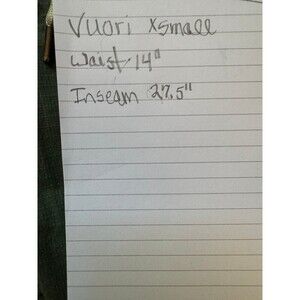 Vuori xsmall
Waist 14"
Inseam 27.5"